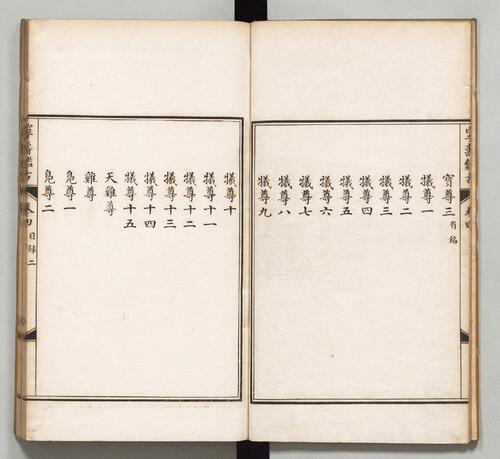 寶尊三有銘
犧尊一
犧尊二
犧尊三
犧尊四
犧尊五
犧尊六
犧尊七
犧尊八
犧尊九
犧尊十
犧尊十一
犧尊十二
犧尊十三
犧尊十四
犧尊十五
天雞尊
雞尊
鳧尊一
鳧尊二
寧壽鑑古 卷四 目錄 二